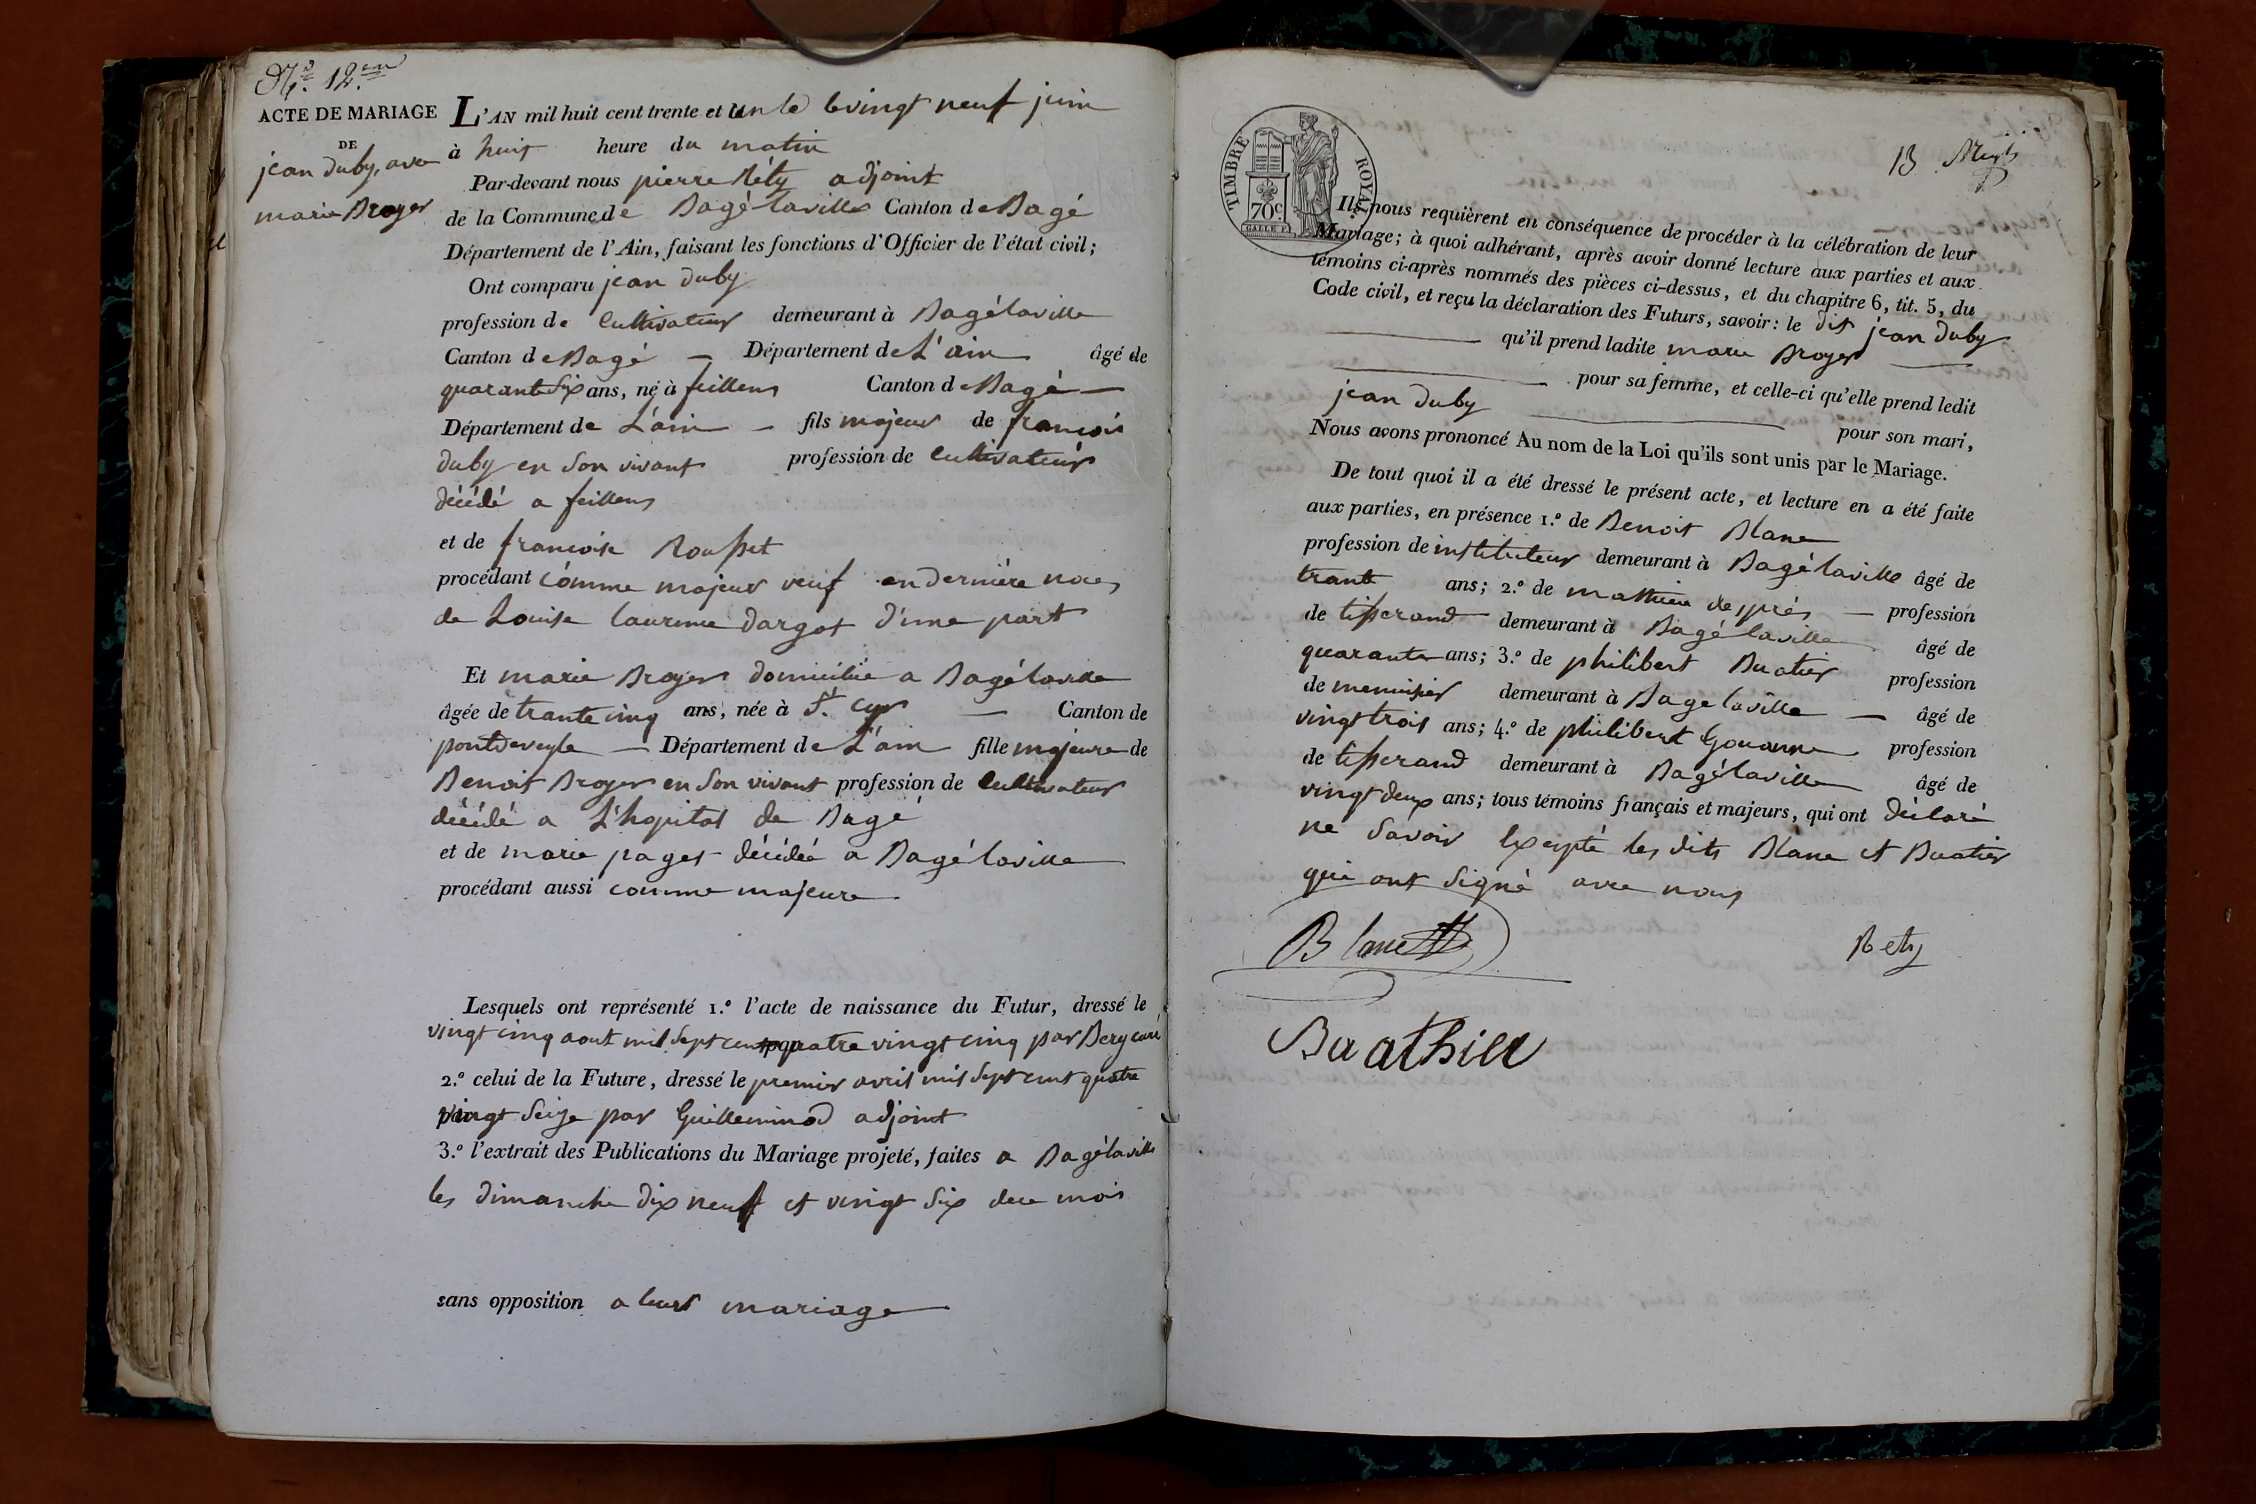 N.º 12.em
ACTE DE MARIAGE
DE
jean duby, avec
marie Broyer
L'AN mil huit cent trente et un le vingt neuf juin
à huit heure du matin
Par-devant nous pierre Réty adjoint
de la Commune de Bagé laville Canton de Bagé
Département de l'Ain, faisant les fonctions d'Officier de l'état civil;
Ont comparu jean duby
profession de Cultivateur demeurant à Bagé laville
Canton de Bagé Département de L'ain âgé de
quarante Six ans, né à feillens Canton de Bagé
Département de L'ain fils majeur de francois
duby en Son vivant profession de Cultivateur
décédé a feillens
et de francoise Rousset
procédant comme majeur veuf en dernière noces
de Louise laurence dargot d'une part
Et marie Broyer domiciliée a Bagé laville
âgée de trante cinq ans, née à St. Cyr Canton de
pontdeveyle Département de L'ain fille majeure de
Benoit Broyer en Son vivant profession de Cultivateur
décédé a L'hopital de Bagé
et de marie pages décédée a Bagé laville
procédant aussi comme majeure
Lesquels ont représenté 1.º l'acte de naissance du Futur, dressé le
vingt cinq aout mil Sept cent quatre vingt cinq par Bery curé
2.º celui de la Future, dressé le premier avril mil Sept cent quatre
vingt Seize par Guilleminod adjoint
3.º l'extrait des Publications du Mariage projeté, faites a Bagé laville
les dimanche dix neuf et vingt Six dece mois
sans opposition a leurs mariage
13
TIMBRE ROYAL
70c.
Ils nous requièrent en conséquence de procéder à la célébration de leur
Mariage; à quoi adhérant, après avoir donné lecture aux parties et aux
témoins ci-après nommés des pièces ci-dessus, et du chapitre 6, tit. 5, du
Code civil, et reçu la déclaration des Futurs, savoir: le dit jean duby
qu'il prend ladite marie Broyer
pour sa femme, et celle-ci qu'elle prend ledit
jean duby pour son mari,
Nous avons prononcé Au nom de la Loi qu'ils sont unis par le Mariage.
De tout quoi il a été dressé le présent acte, et lecture en a été faite
aux parties, en présence 1.º de Benoit Blanc
profession de instituteur demeurant à Bagé laville âgé de
trante ans; 2.º de mathieu després profession
de tisserand demeurant à Bagé laville âgé de
quarante ans; 3.º de philibert Buatier profession
de menuisier demeurant à Bage laville âgé de
vingt trois ans; 4.º de philibert Gouanne profession
de tisserand demeurant à Bagé laville âgé de
vingt deux ans; tous témoins français et majeurs, qui ont déclaré
ne Savoir Excepté les dits Blanc et Buatier
qui ont Signé avec nous
Blanc
Réty
Buathier